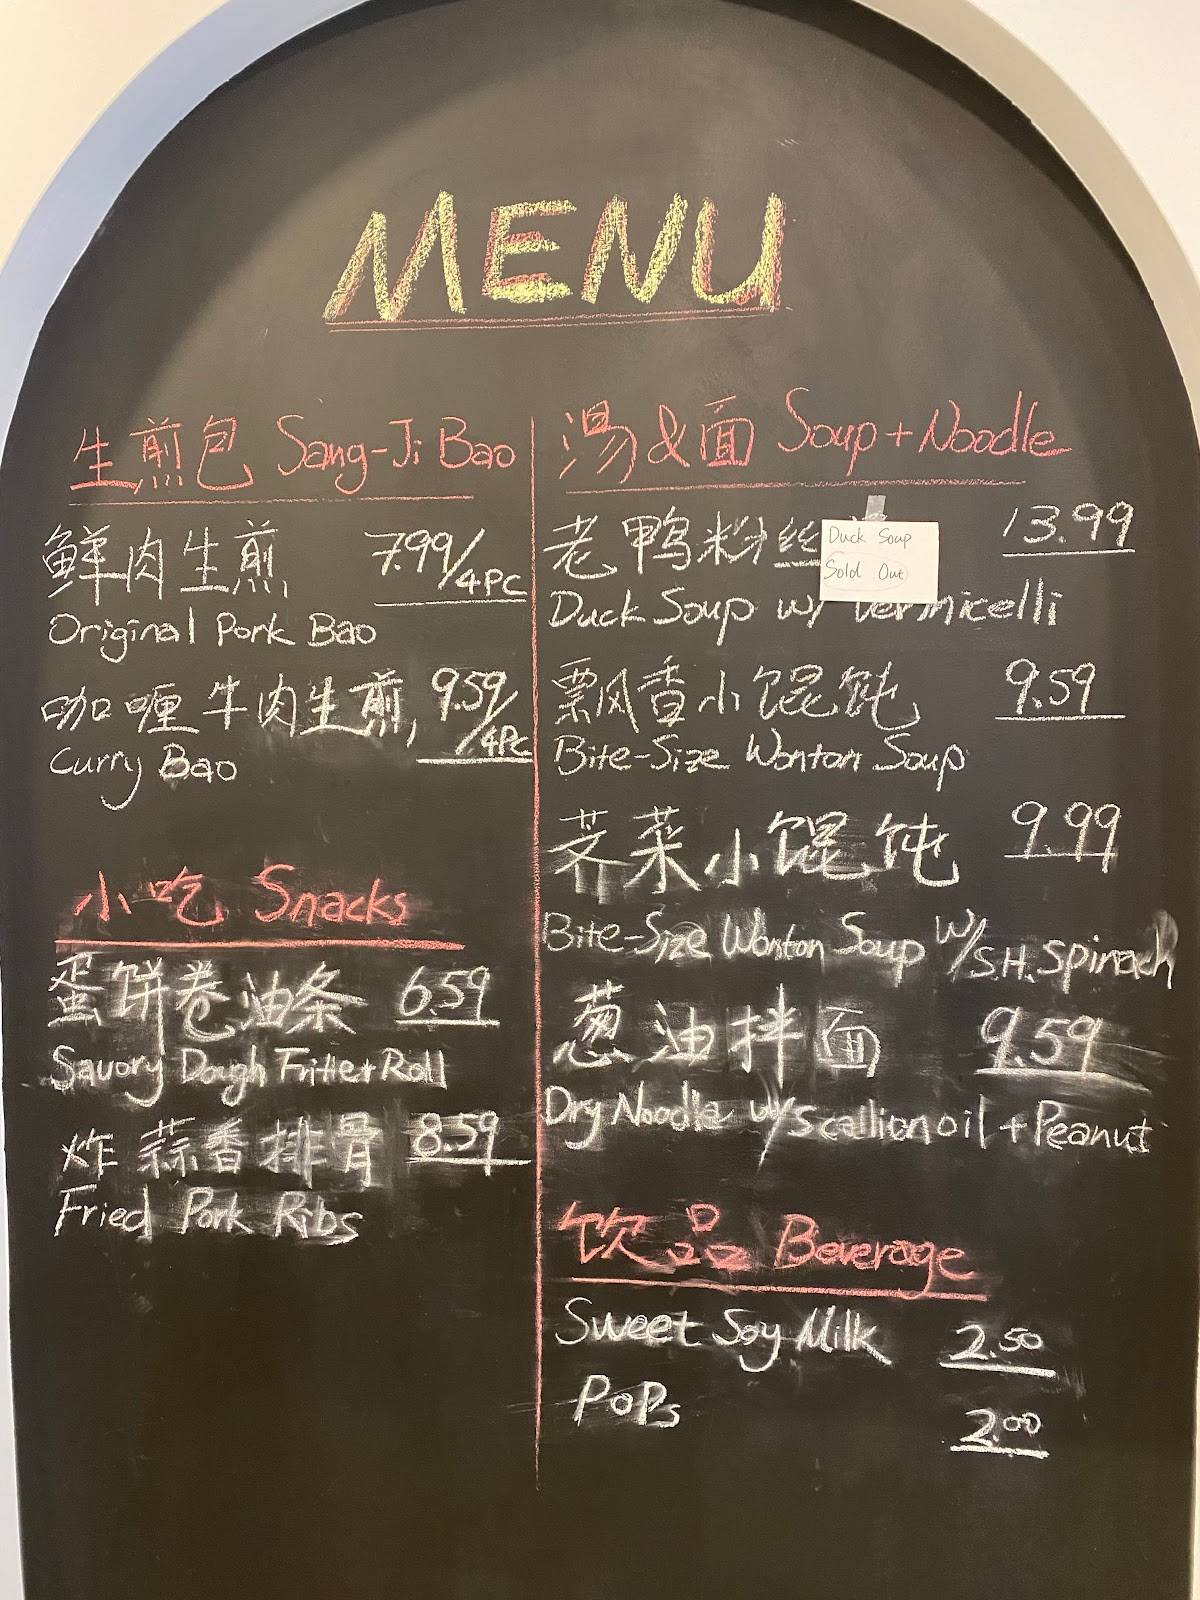 MENU
生煎包 Sang-Ji Bao
鲜肉生煎 7.99/4PC
Original Pork Bao
咖喱牛肉生煎, 9.59/4PC
Curry Bao
小吃 Snacks
蛋饼卷油条 6.59
Savory Dough Fritter Roll
炸蒜香排骨 8.59
Fried Pork Ribs
湯&面 Soup+Noodle
老鸭粉丝 13.99
Duck Soup
Sold Out
Duck Soup w/ Vermicelli
飘香小馄饨 9.59
Bite-Size Wonton Soup
荠菜小馄饨 9.99
Bite-Size Wonton Soup w/ S.H. Spinach
葱油拌面 9.59
Dry Noodle w/ Scallion oil + Peanut
饮品 Beverage
Sweet Soy Milk 2.50
PoPs 2.00